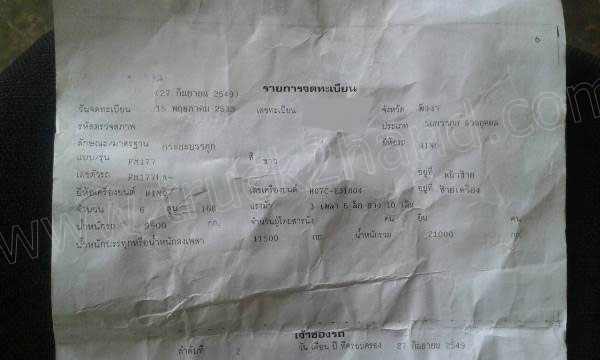 6
(27 กันยายน 2549) รายการจดทะเบียน
วันจดทะเบียน 15 พฤษภาคม 2533 เลขทะเบียน จังหวัด
รหัสตรวจสภาพ ประเภท รถบรรทุก ส่วนบุคคล
ลักษณะ/มาตรฐาน กระบะบรรทุก ยี่ห้อรถ HINO
แบบ/รุ่น FM177 สี ขาว
เลขตัวรถ อยู่ที่ หน้าซ้าย
ยี่ห้อเครื่องยนต์ HINO เลขเครื่องยนต์ อยู่ที่ ซ้ายเครื่อง
จำนวน 6 สูบ 168 แรงม้า 3 เพลา 6 ล้อ ยาง 10 เส้น
น้ำหนักรถ 9500 กก. จำนวนผู้โดยสารนั่ง คน ยืน คน
น้ำหนักบรรทุกหรือน้ำหนักลงเพลา 11500 กก. น้ำหนักรวม 21000 กก.
เจ้าของรถ
ลำดับที่ 2 วัน เดือน ปี ที่ครอบครอง 27 กันยายน 2549
www.truck2hand.com